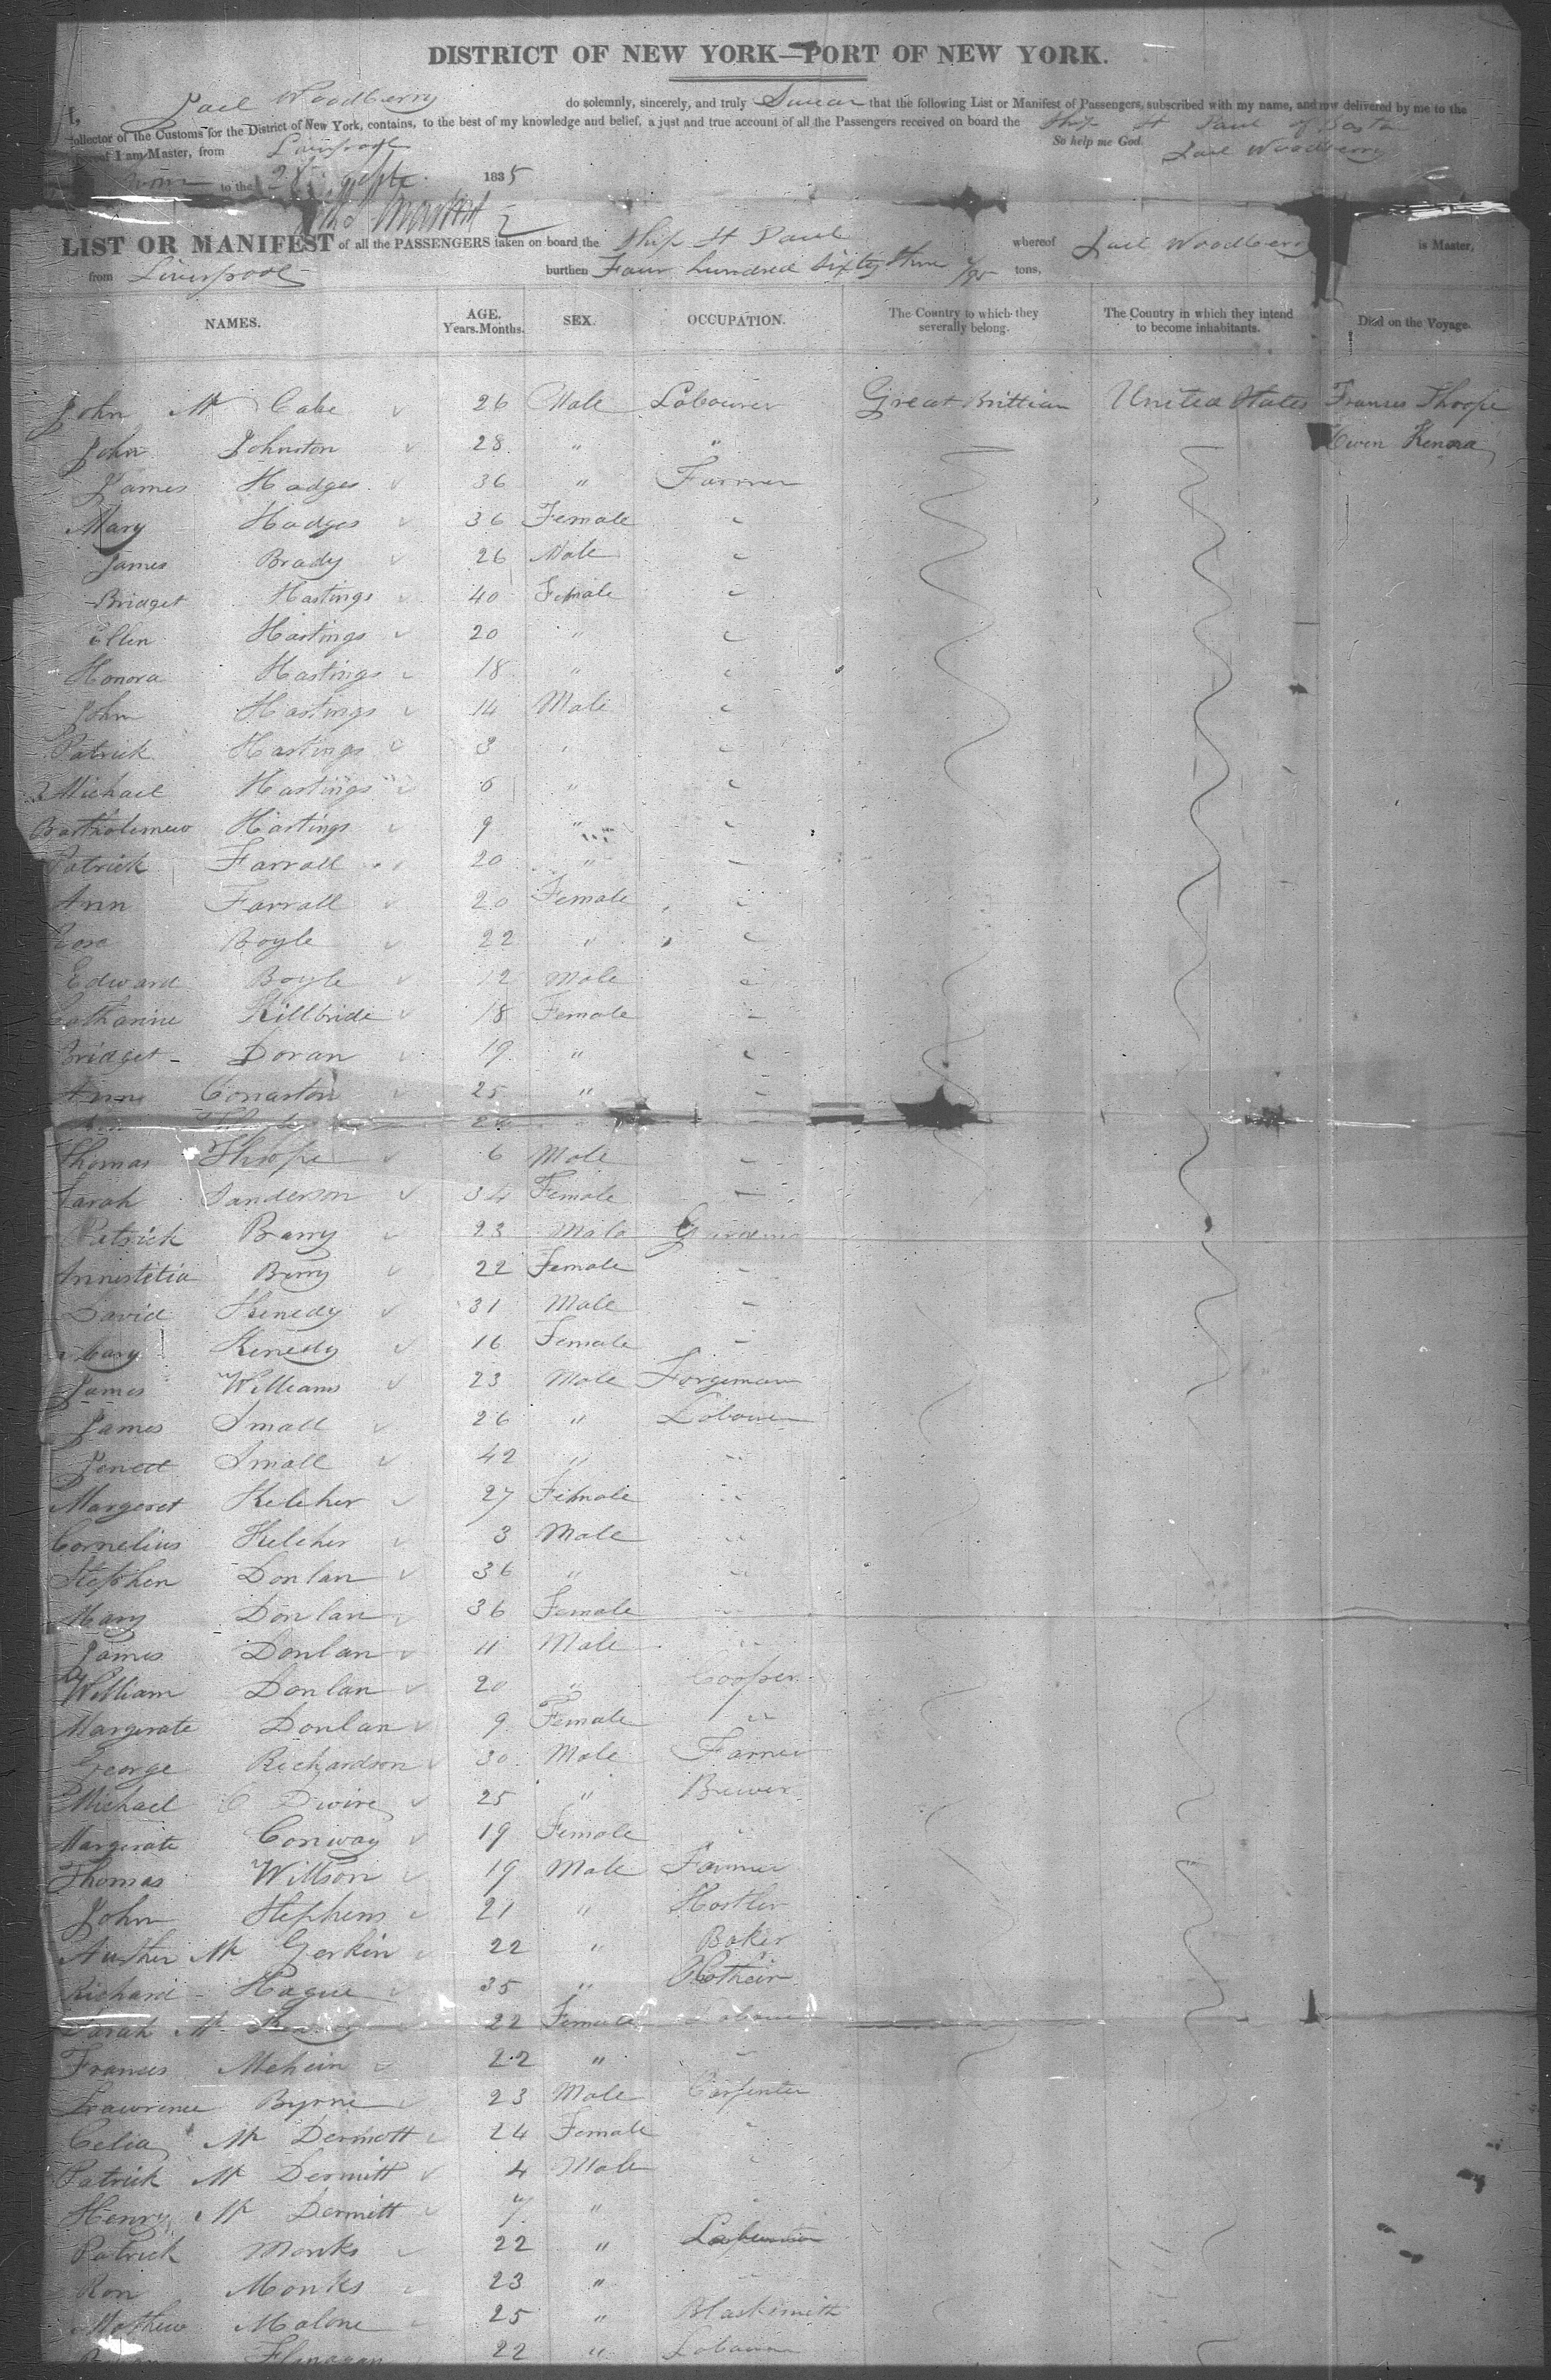 DISTRICT OF NEW YORK—PORT OF NEW YORK.
I, Jael Woodberry do solemnly, sincerely, and truly Swear that the following List or Manifest of Passengers, subscribed with my name, and now delivered by me to the
Collector of the Customs for the District of New York, contains, to the best of my knowledge and belief, a just and true account of all the Passengers received on board the Ship St Paul of Boston
whereof I am Master, from Liverpool So help me God. Jael Woodberry
Sworn to the 28 Septr. 1835
LIST OR MANIFEST of all the PASSENGERS taken on board the Ship St Paul whereof Jael Woodberry is Master,
from Liverpool burthen Four hundred Sixty three /95 tons,
NAMES. AGE. Years. Months. SEX. OCCUPATION. The Country to which they severally belong. The Country in which they intend to become inhabitants. Died on the Voyage.
John Mc Cabe 26 Male Labourer Great Brittian United States Frances Thorpe
John Johnston 28 " " Owen Kenna
James Hodges 36 " Farmer
Mary Hodges 36 Female
James Brady 26 Male
Bridget Hastings 40 Female
Ellen Hastings 20 "
Honora Hastings 18 "
John Hastings 14 Male
Patrick Hastings 3 "
Michael Hastings 6 "
Bartholemew Hastings 9 "
Patrick Farrall 20 "
Ann Farrall 20 Female
Rosa Boyle 22 "
Edward Boyle 12 Male
Catharine Killbride 18 Female
Bridget Doran 19 "
Ann Conarton 25 "
Thorpe 24
Thomas Thorpe 6 Male
Sarah Sanderson 34 Female
Patrick Barry 23 Male Gardner
Annestitia Berry 22 Female
David Kenedy 31 Male
Mary Kenedy 16 Female
James Williams 23 Male Forgeman
James Small 26 " Labourer
Jenett Small 42 "
Margeret Keleher 27 Female
Cornelius Keleher 3 Male
Stephen Donlan 36 "
Mary Donlan 36 Female
James Donlan 11 Male
William Donlan 20 " Cooper
Margerate Donlan 9 Female
George Richardson 30 Male Farmer
Michael O Dwire 25 " Brewer
Margerate Conway 19 Female
Thomas Willson 19 Male Farmer
John Stephens 21 " Hostler
Auther Mc Gerkin 22 " Baker
Richard Hague 35 " Clothier
Sarah Mc 22 Female
Frances Mehein 22 "
Lawrence Byrne 23 Male Carpenter
Celia Mc Dermott 24 Female
Patrick Mc Dermitt 4 Male
Henry Mc Dermitt 7 "
Patrick Monks 22 "
Ron Monks 23 "
Mathew Malone 25 " Blacksmith
Flanagan 22 " Labourer